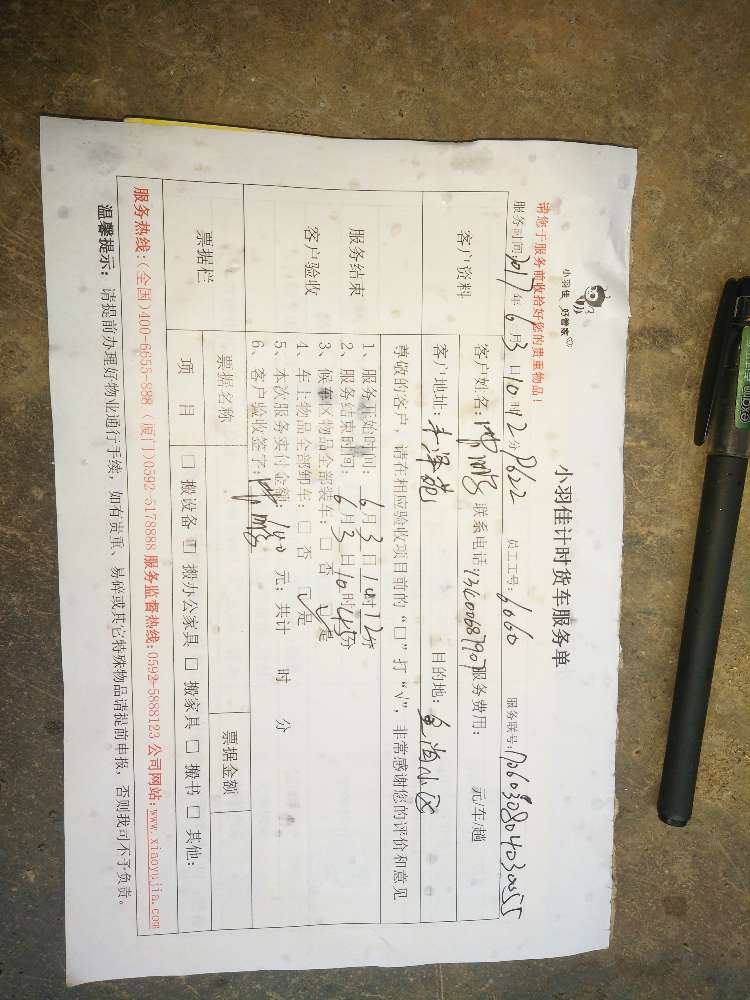 小羽佳 好管家
小羽佳计时货车服务单
请您于服务前收拾好您的贵重物品!
服务时间:2017年6月3日10时12分 员工工号:6060 服务联号:
客户资料
客户姓名: 联系电话:13400687907 服务费用: 元/车/趟
客户地址: 目的地:
尊敬的客户,请在相应验收项目前的“□”打“√”,非常感谢您的评价和意见
服务结束
客户验收
1、服务开始时间:6月3日10时12分
2、服务结束时间:6月3日10时45分
3、候车区物品全部装车:□ 否 ☑是
4、车上物品全部卸车:□ 否 ☑是
5、本次服务实付金额:140元;共计 时 分
6、客户验收签字:
票据栏
票据名称 票据金额
项 目 □ 搬设备 □ 搬办公家具 □ 搬家具 □ 搬书 □ 其他:
服务热线:(全国)400-6655-888(厦门)0592-5178888 服务监督热线:0592-5888123 公司网站:www.xiaoyujia.com
温馨提示:请提前办理好物业通行手续,如有贵重、易碎或其它特殊物品请提前申报,否则我司不予负责。